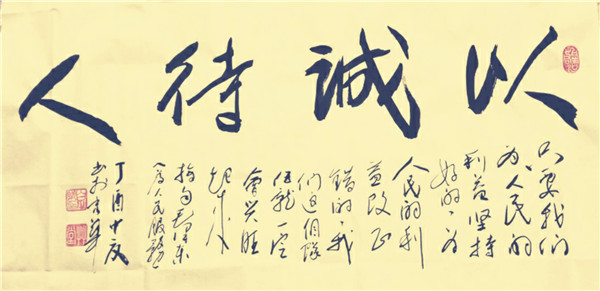 以誠待人
只要我们
为人民的
利益坚持
好的、为
人民的利
益改正
错的、我
们这个队
伍就一定
会兴旺
起来
摘句毛泽东
为人民服务
丁酉